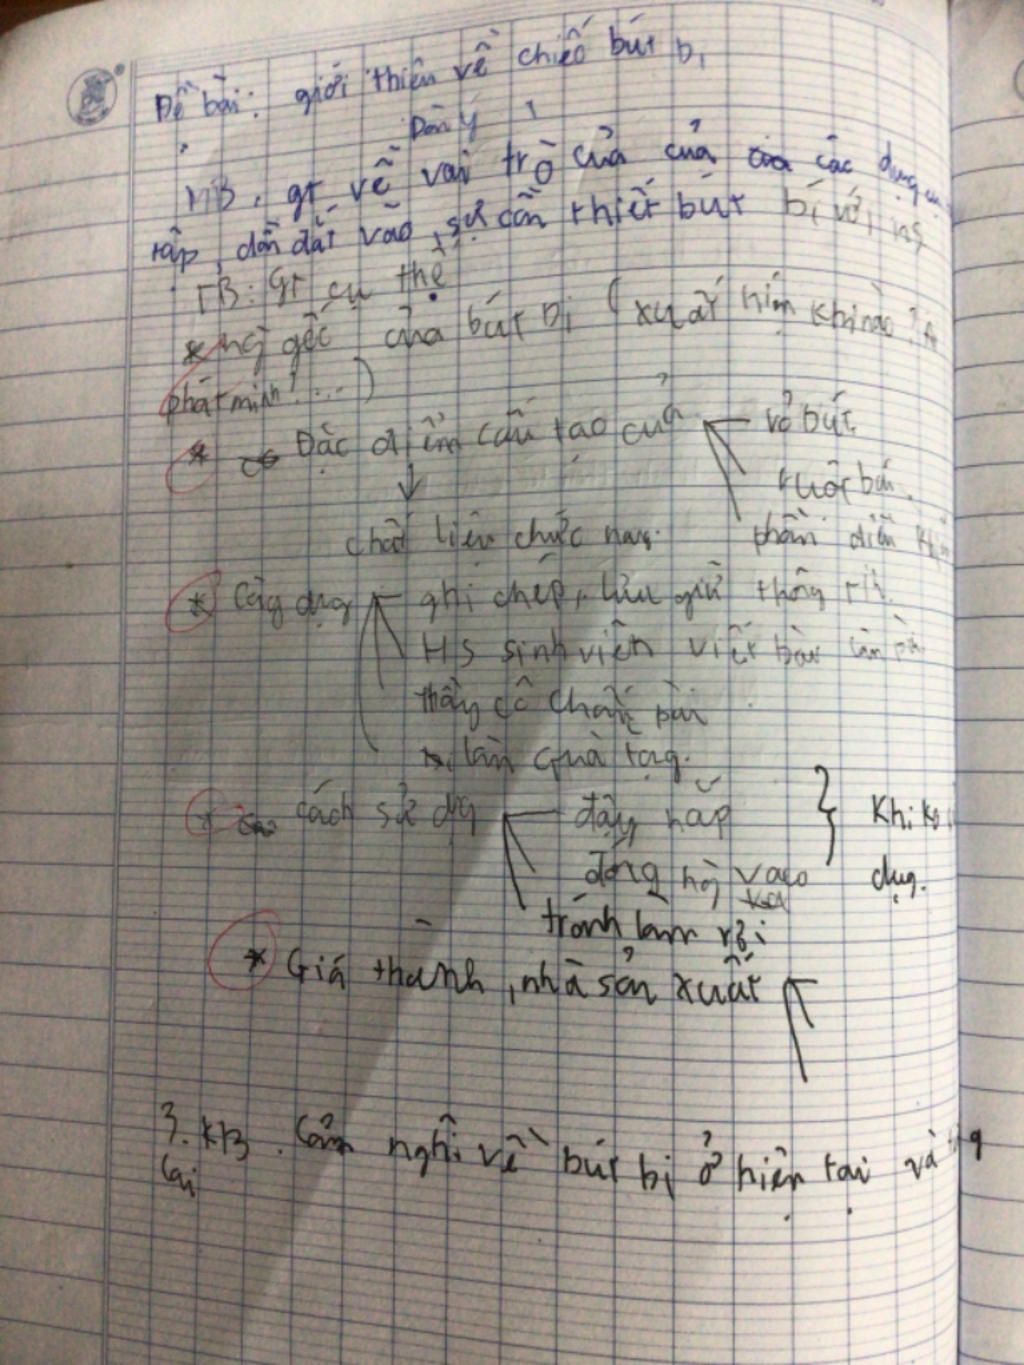 Đề bài: giới thiệu về chiếc bút bi
Dàn ý
MB. gt về vai trò của của các dụng
tập, dẫn dắt vào sự cần thiết bút bi với ng
TB: gt cụ thể
* ng gốc của bút bi ( xuất hiện khi nào?
phát minh! ...)
* Đặc điểm cấu tạo của vỏ bút
ruột bút.
chất liệu chức năng. phần điều
* Công dụng ghi chép, lưu giữ thông tin.
HS sinh viên viết bài làm
thầy cô chấm bài
làm quà tặng.
* cách sử dụg đậy nắp } khi ko
đóng vào dụg.
tránh làm rơi
* Giá thành, nhà sản xuất
3. KB. Cảm nghĩ về bút bi ở hiện tại và
lai